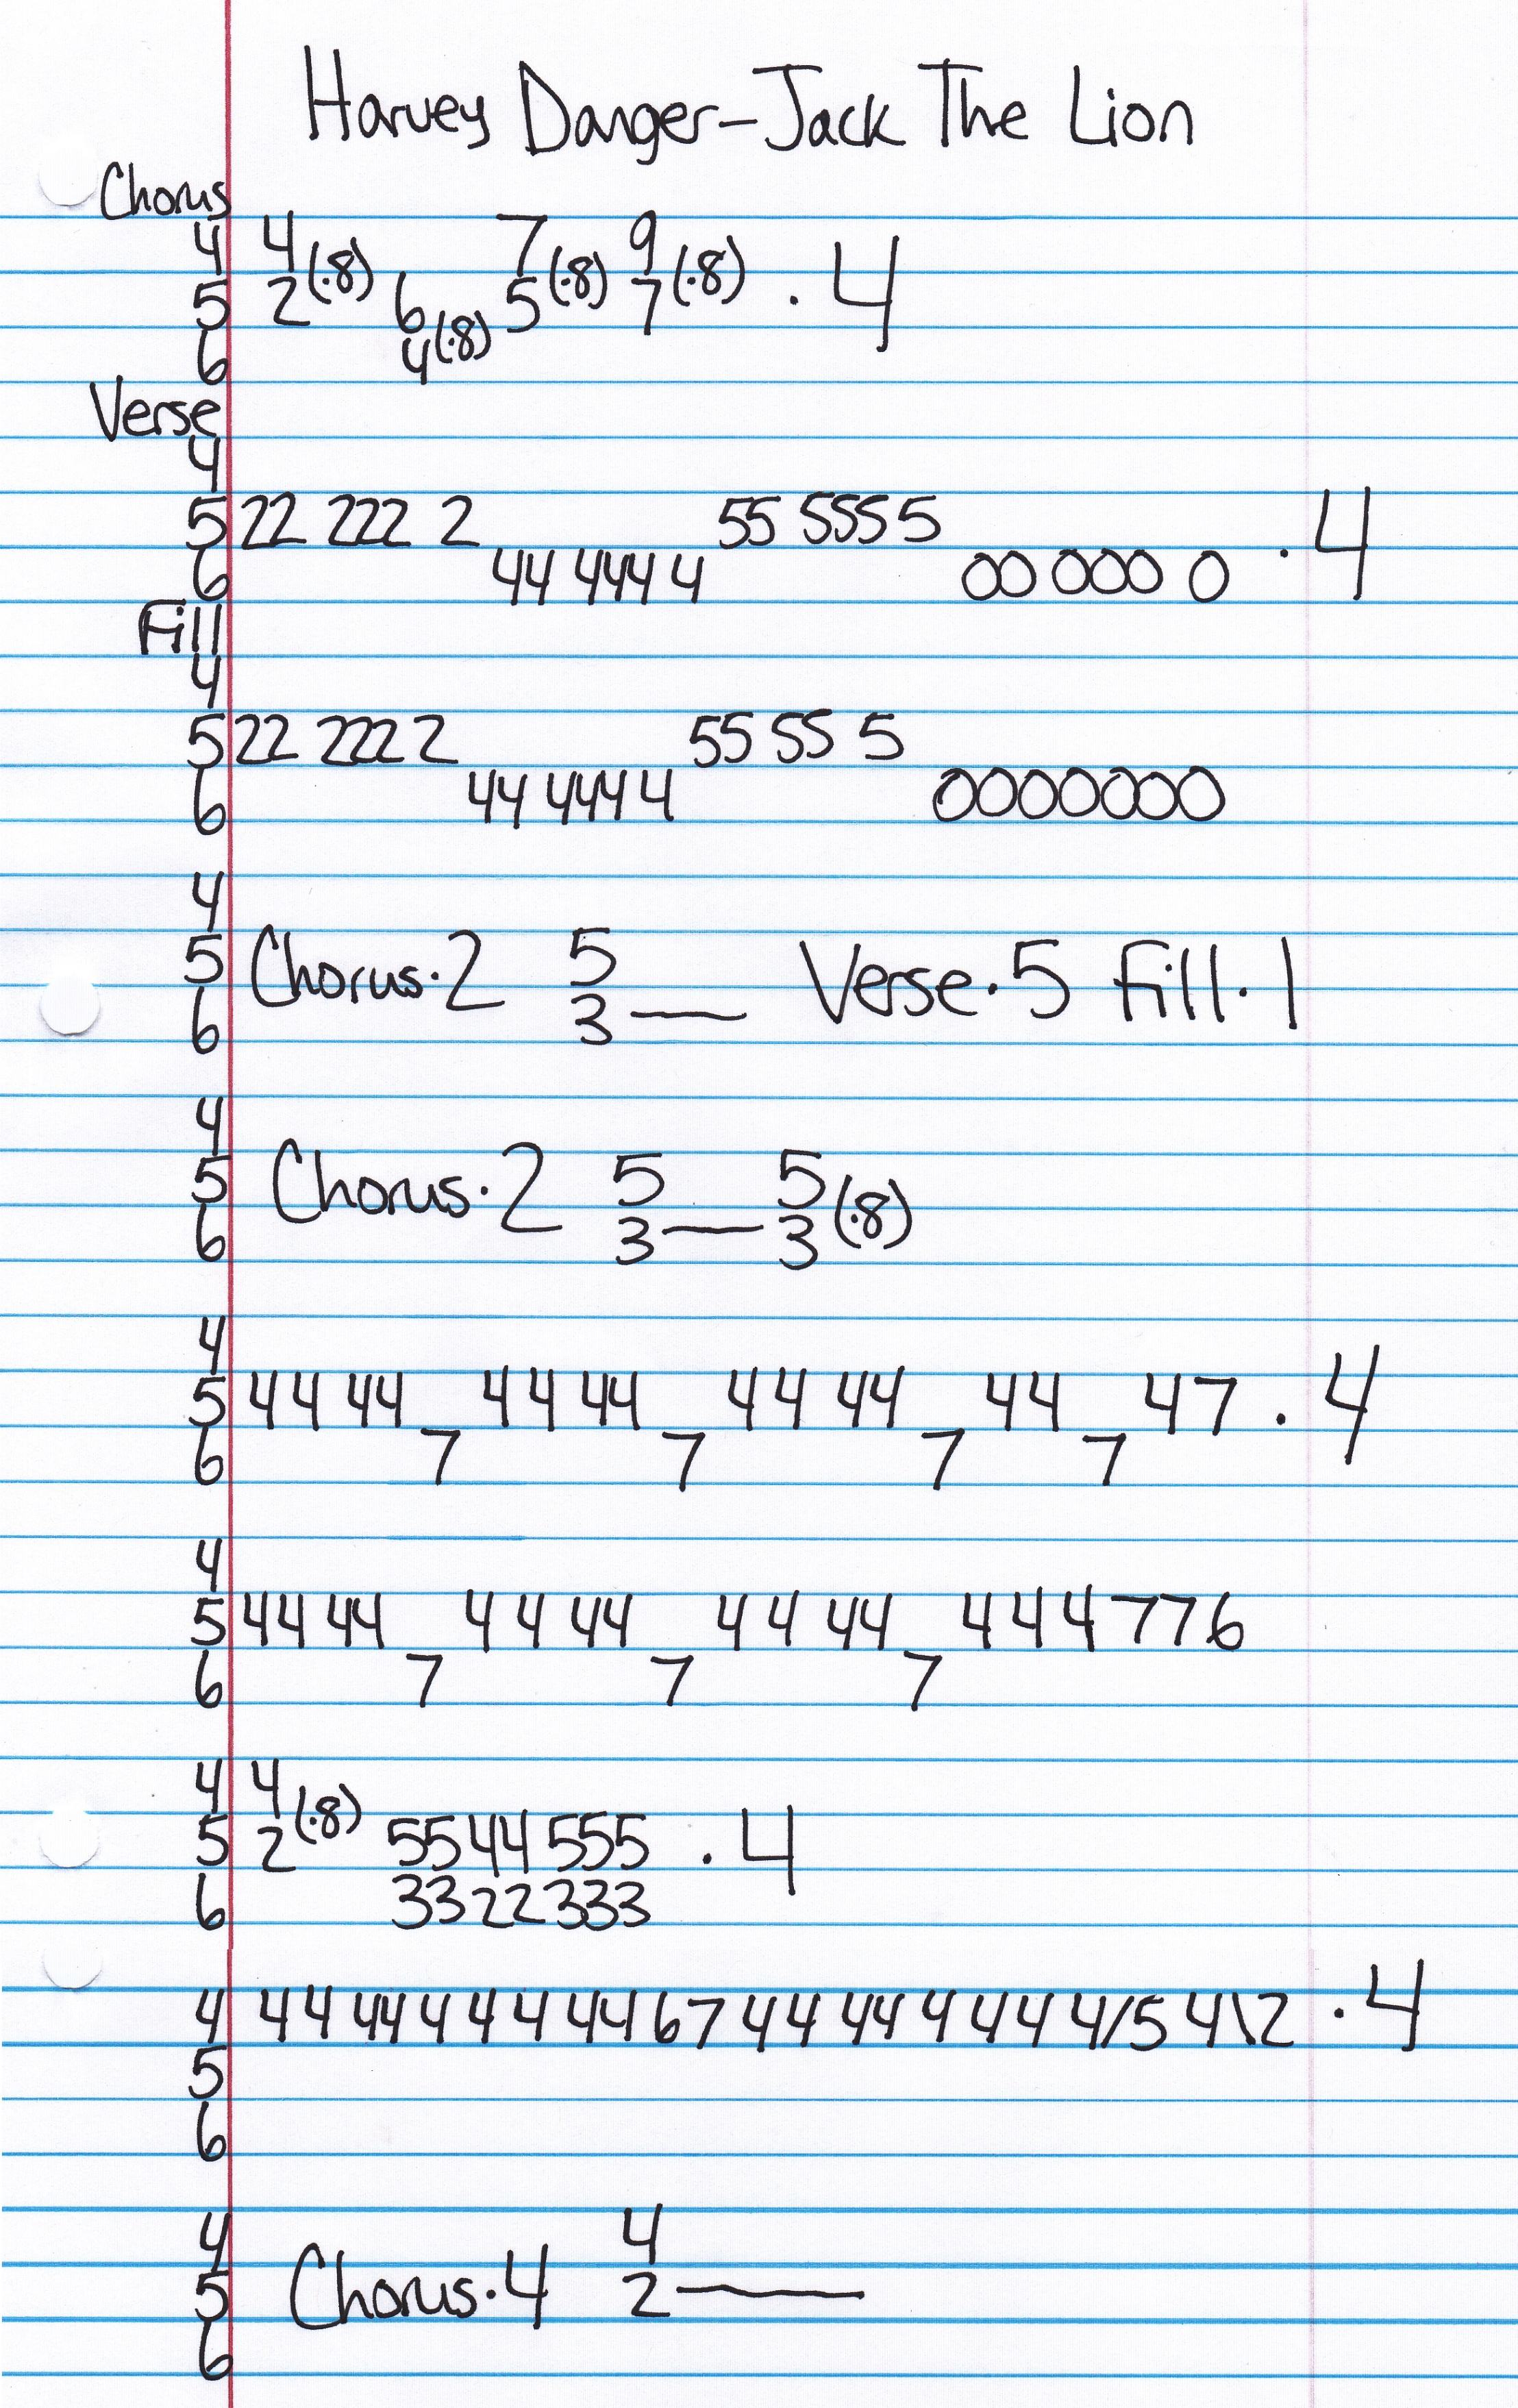 Harvey Danger-Jack The Lion
Chorus
4 4 7 9
5 2(·8) 6 5(·8) 7(·8) · 4
6 4(·8)
Verse
4
5 22 222 2 55 555 5 · 4
6 44 444 4 00 000 0
Fill
4
5 22 222 2 55 55 5
6 44 444 4 0000000
4
5 Chorus·2 5 Verse·5 Fill·1
6 3—
4
5 Chorus·2 5 5
6 3—3(·8)
4
5 44 44 44 44 44 44 44 47 · 4
6 7 7 7 7
4
5 44 44 44 44 44 44 444776
6 7 7 7
4 4
5 2(·8) 5544555 · 4
6 3322333
4 44 44 4 4 4 44 67 44 44 4 4 4 4/5 4\2 · 4
5
6
4 4
5 Chorus·4 2—
6